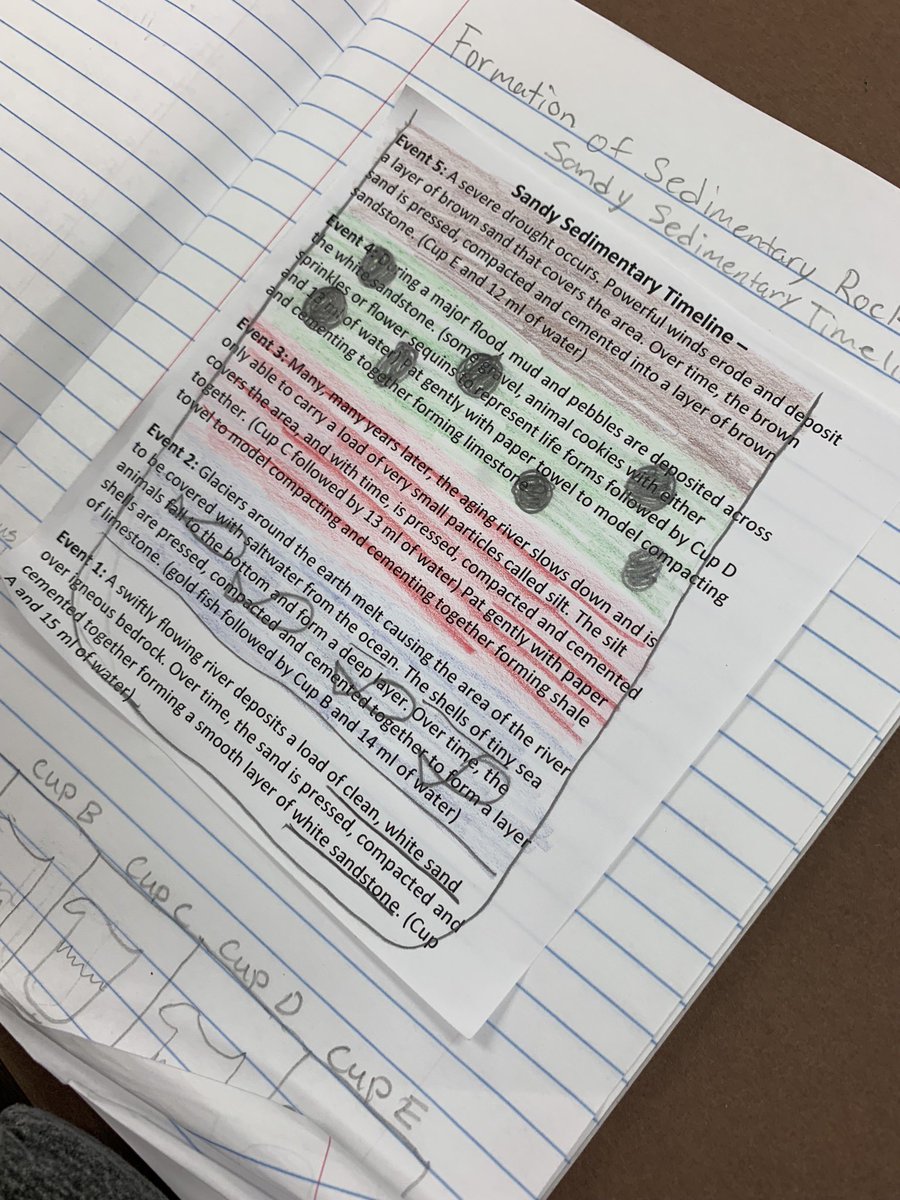 Formation of Sedimentary Rock
Sandy Sedimentary Timeli
Sandy Sedimentary Timeline –
Event 5: A severe drought occurs. Powerful winds erode and deposit
a layer of brown sand that covers the area. Over time, the brown
sand is pressed, compacted and cemented into a layer of brown
sandstone. (Cup E and 12 ml of water)
Event 4: During a major flood, mud and pebbles are deposited across
the white sandstone. (some gravel, animal cookies with either
sprinkles or flower sequins to represent life forms followed by Cup D
and ml of water) Pat gently with paper towel to model compacting
and cementing together forming limestone.
Event 3: Many, many years later, the aging river slows down and is
only able to carry a load of very small particles called silt. The silt
covers the area, and with time, is pressed, compacted and cemented
together. (Cup C followed by 13 ml of water) Pat gently with paper
towel to model compacting and cementing together forming shale
Event 2: Glaciers around the earth melt causing the area of the river
to be covered with saltwater from the ocean. The shells of tiny sea
animals fall to the bottom, and form a deep layer. Over time, the
shells are pressed, compacted and cemented together to form a layer
of limestone. (gold fish followed by Cup B and 14 ml of water)
Event 1: A swiftly flowing river deposits a load of clean, white sand
over igneous bedrock. Over time, the sand is pressed, compacted and
cemented together forming a smooth layer of white sandstone. (Cup
A and 15 ml of water)
CUP B
CUP C
CUP D
CUP E